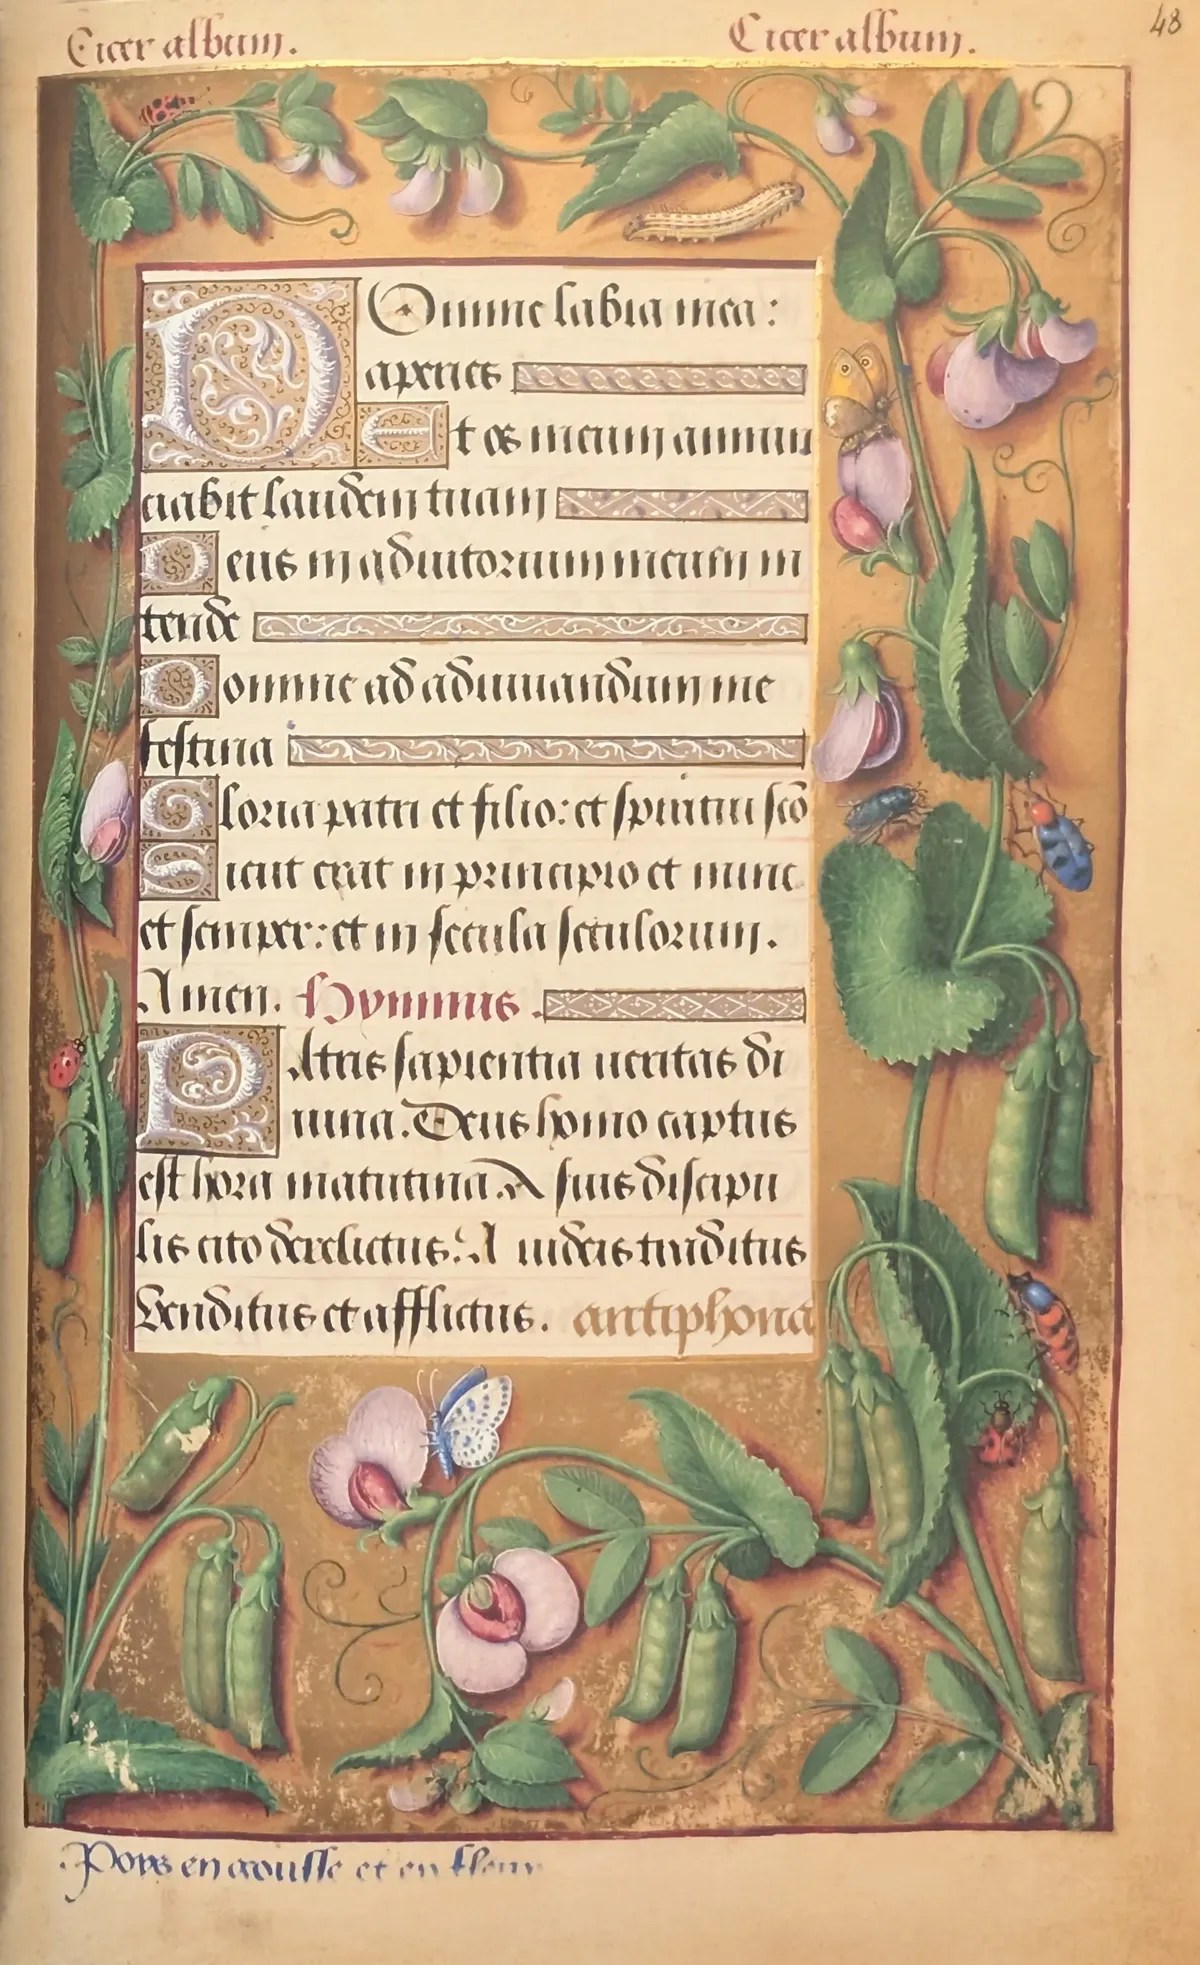 Cicer album. Cicer album. 48
Domine labia mea:
aperies
Et os meum annun
ciabit laudem tuam
Deus in adiutorium meum in
tende
Domine ad adiuuandum me
festina
Gloria patri et filio: et spiritui sc̄o
Sicut erat in principio et nunc
et semper: et in secula seculorum.
Amen. Hymnus.
Patris sapientia ueritas di
uina. Deus homo captus
est hora matutina. A suis discipu
lis cito derelictus. A iudeis traditus
venditus et afflictus. antiphona
Poys en cousse et en fleur